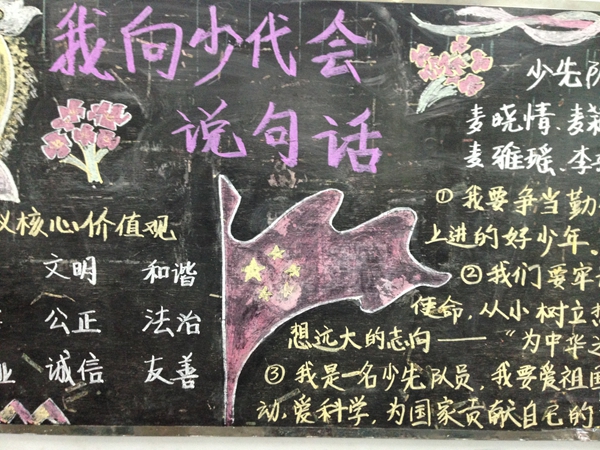 我向少代会
说句话
核心价值观
文明 和谐
公正 法治
诚信 友善
少先队
麦晓情、麦
麦雅瑶、李
①我要争当勤
上进的好少年。
②我们要牢
使命,从小树立
想远大的志向——“为中华之
③我是一名少先队员,我要爱祖国
动、爱科学,为国家贡献自己的